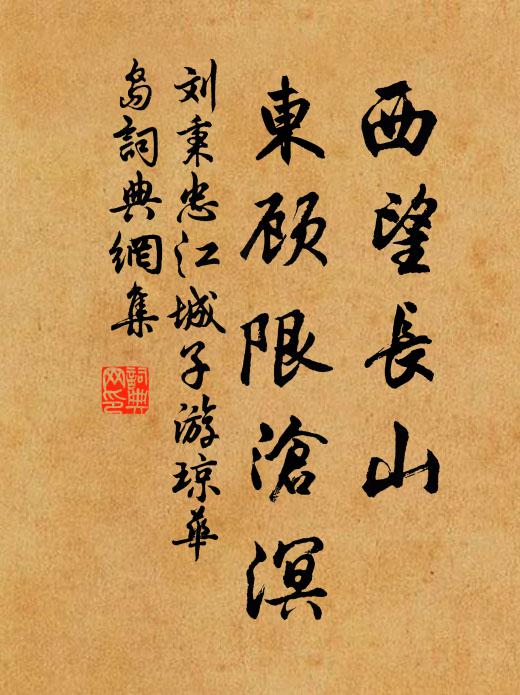 西望長山
東顾限滄溟
刘秉忠江城子游琼華
岛詞典網集
詞典
网印